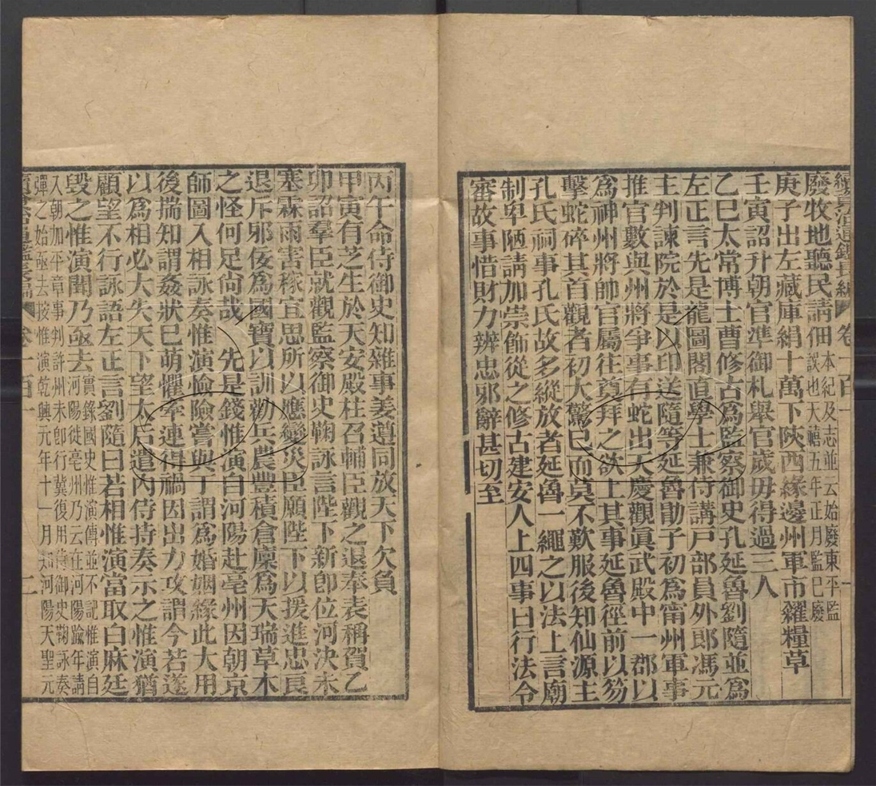 續資治通鑑長編 卷一百一 一
廢牧地聽民請佃
本紀及志並云始廢東平監
誤也天禧五年正月監已廢
庚子出左藏庫絹十萬下陝西緣邊州軍市糴糧草
壬寅詔升朝官準御札舉官歲毋得過三人
乙巳太常博士曹修古爲監察御史孔延魯劉隨並爲
左正言先是龍圖閣直學士兼侍講戶部員外郎馮元
主判諫院於是以印送隨等延魯勖子初爲甯州軍事
推官數與州將爭事有蛇出天慶觀眞武殿中一郡以
爲神州將帥官屬往奠拜之欲上其事延魯徑前以笏
擊蛇碎其首觀者初大驚已而莫不歎服後知仙源主
孔氏祠事孔氏故多縱放者延魯一繩之以法上言廟
制卑陋請加崇飾從之修古建安人上四事曰行法令
審故事惜財力辨忠邪辭甚切至
丙午命侍御史知雜事姜遵同放天下欠負
甲寅有芝生於天安殿柱召輔臣觀之退奉表稱賀乙
卯詔羣臣就觀監察御史鞠詠言陛下新卽位河決未
塞霖雨害稼宜思所以應變災臣願陛下以援進忠良
退斥邪佞爲國寶以訓勸兵農豐積倉廩爲天瑞草木
之怪何足尙哉 先是錢惟演自河陽赴亳州因朝京
師圖入相詠奏惟演憸險嘗與丁謂爲婚姻緣此大用
後揣知謂姦狀已萌懼牽連得禍因出力攻謂今若遂
以爲相必大失天下望太后遣內侍持奏示之惟演猶
顧望不行詠語左正言劉隨曰若相惟演當取白麻廷
毀之惟演聞乃亟去
實錄國史惟演傳並不記惟演自
河陽徙亳州乃云在河陽踰年請
入朝加平章事判許州未卽行冀復用侍御史鞠詠奏
彈之始亟去按惟演乾興元年十一月知河陽天聖元
續資治通鑑長編 卷一百一 二